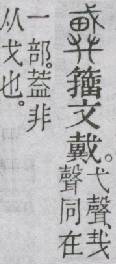 籒文戴。
弋聲、𢦏
聲同在
一部。葢非
从戈也。